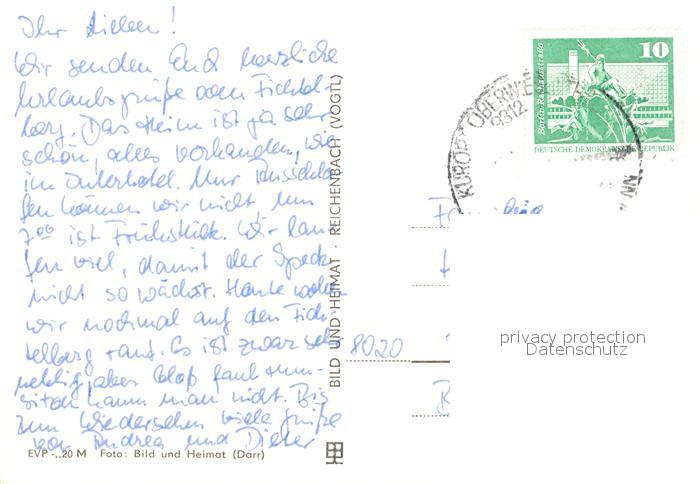 Ihr Lieben!
Wir senden Euch herzliche
Urlaubsgrüße vom Fichtel-
berg. Das Heim ist ja sehr
schön, alles vorhanden, wie
im Interhotel. Nur ausschla-
fen können wir nicht um
7⁰⁰ ist Frühstück. Wir lau-
fen viel, damit der Speck
nicht so wächst. Heute wollen
wir nochmal auf den Fich-
telberg rauf. Es ist zwar sehr
neblig, aber bloß faul rum-
sitzen kann man nicht. Bis
zum Wiedersehen viele Grüße
von Andrea und Dieter
EVP -,20 M Foto: Bild und Heimat (Darr)
BILD UND HEIMAT · REICHENBACH (VOGTL)
10
Berlin-Rathausstraße
DEUTSCHE DEMOKRATISCHE REPUBLIK
KURORT OBERWIE
9312
8020
privacy protection
Datenschutz